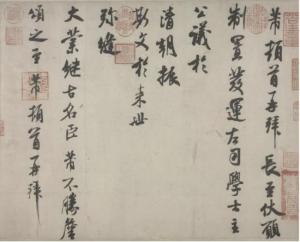 芾頓首再拜長至伏願
制置發運左司學士主
公議於
清朝振
斯文於來世
弥縫
大業继古名臣芾不勝瞻
頌之至芾頓首再拜